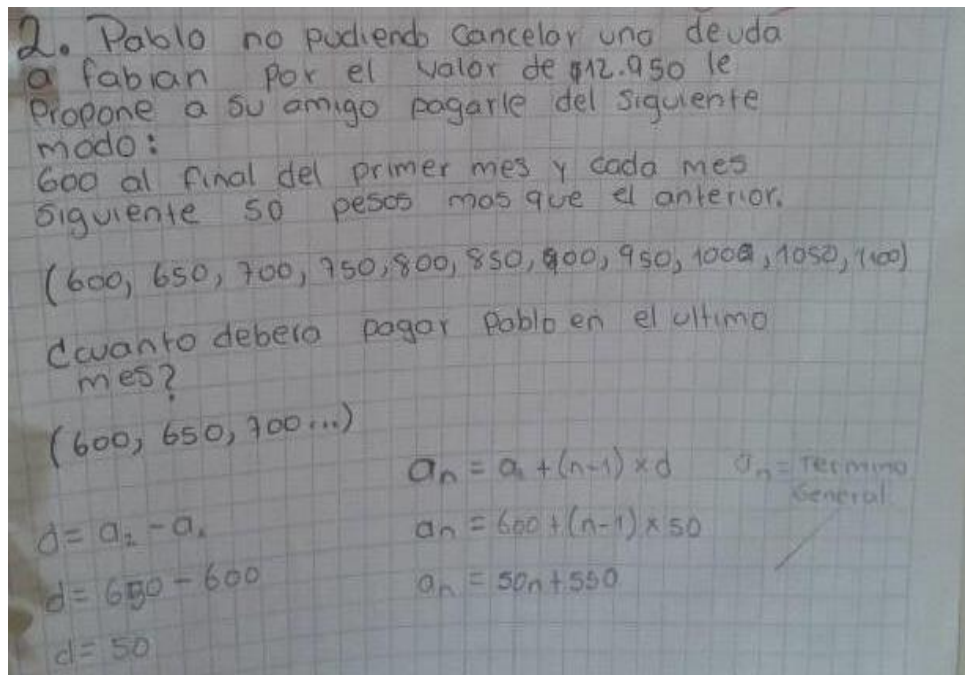 2. Pablo no pudiendo cancelar una deuda
a fabian por el valor de $12.950 le
Propone a su amigo pagarle del siguiente
modo:
600 al final del primer mes y cada mes
siguiente 50 pesos mas que el anterior.
(600, 650, 700, 750, 800, 850, 900, 950, 1000, 1050, 1100)
¿cuanto debera pagar Pablo en el ultimo
mes?
(600, 650, 700...)
an = a1 + (n-1) x d an = Termino
General
d = a2 - a1 an = 600 + (n-1) x 50
d = 650 - 600 an = 50n + 550
d = 50